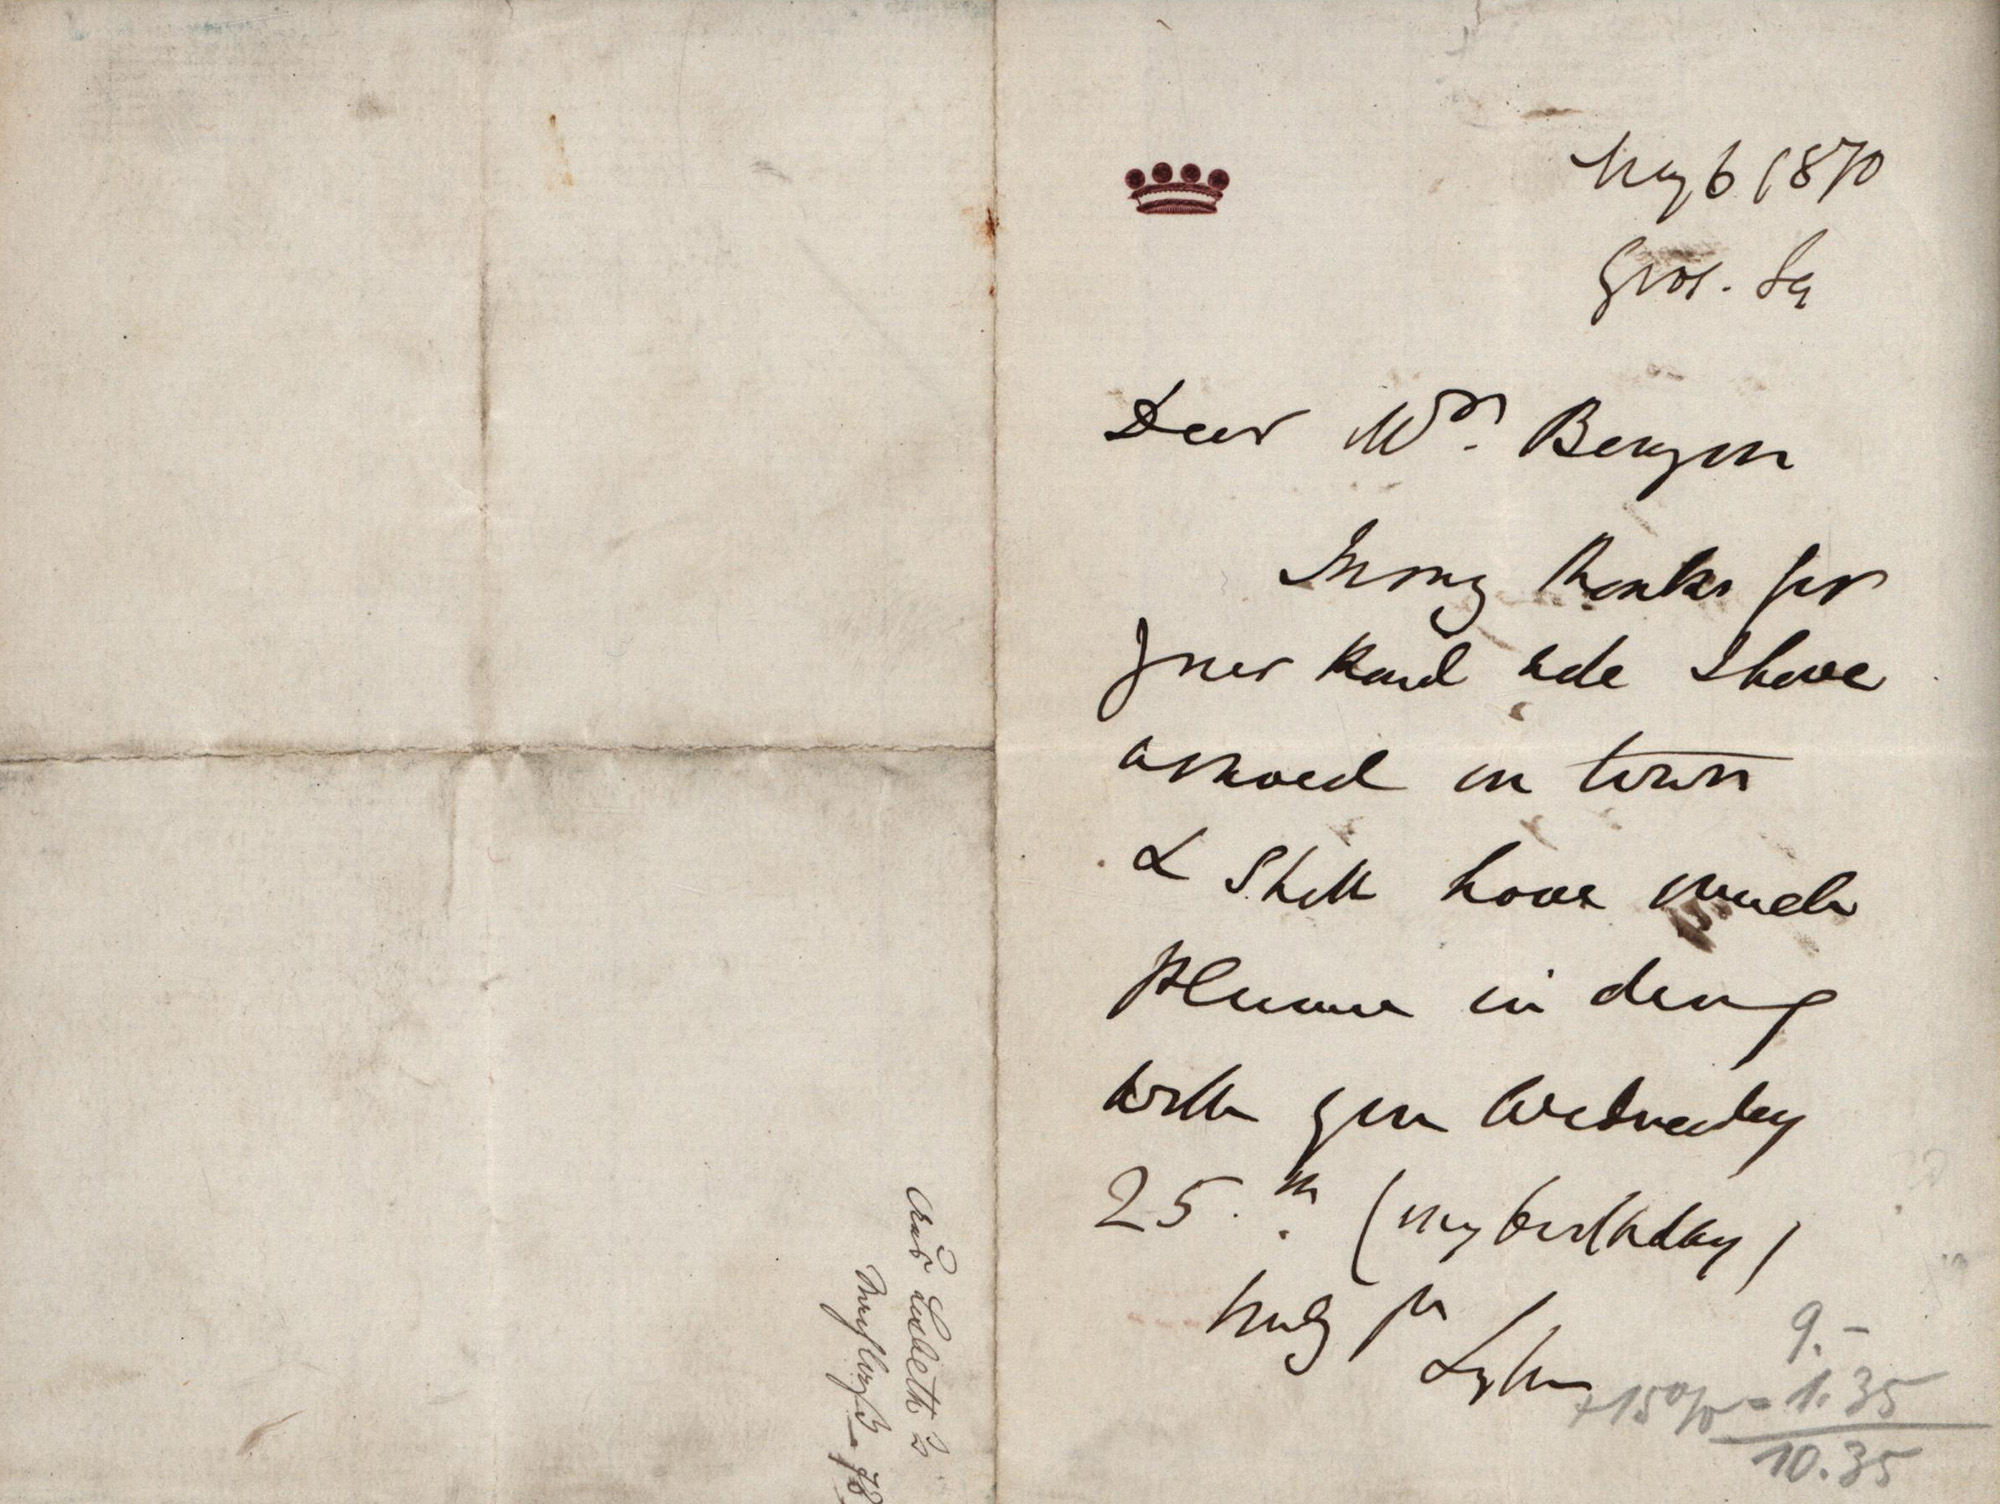 May 6 1870
Gros. Sq
Dear Mrs. Benzon
Many thanks for
your kind note I have
arrived in town
& shall have much
pleasure in dining
with you Wednesday
25.th (my birthday)
truly yrs
Lytton
9.-
+15%= 1.35
10.35